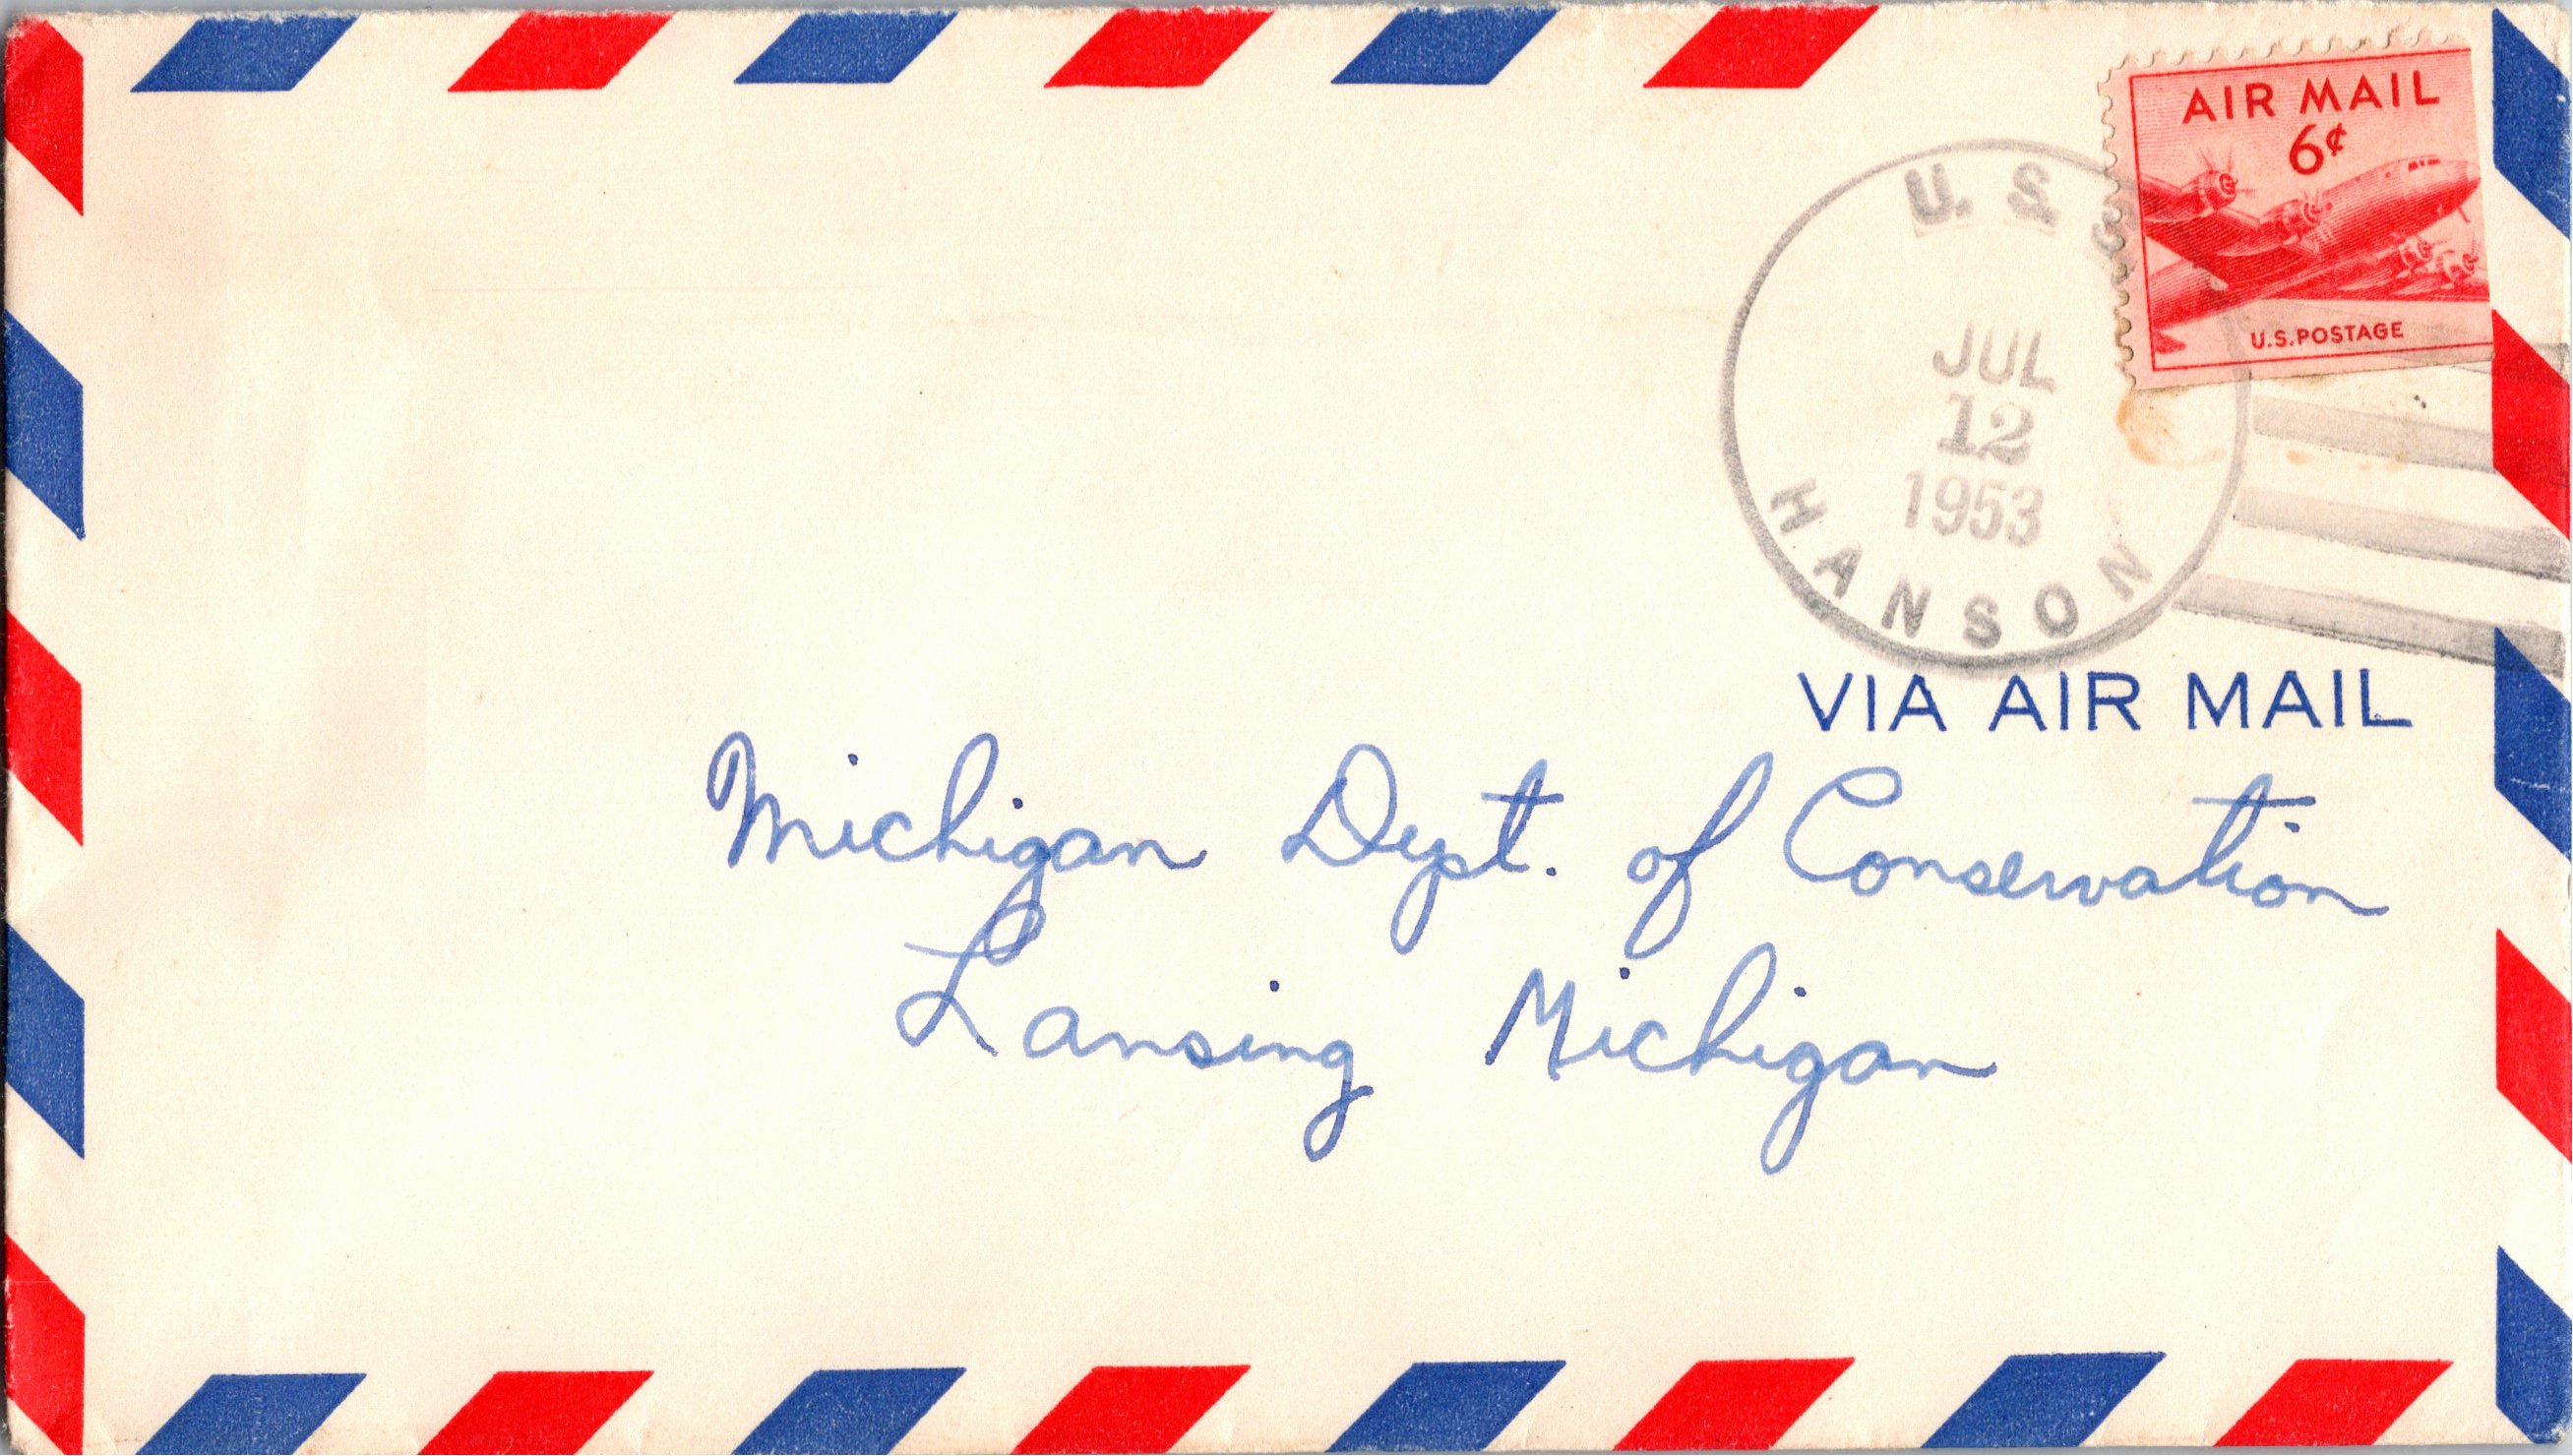 AIR MAIL
6¢
U.S. POSTAGE
U. S. S.
JUL
12
1953
HANSON
VIA AIR MAIL
Michigan Dept. of Conservation
Lansing Michigan